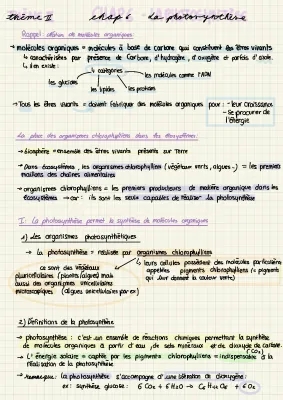 thème II chap 6 : La photosynthèse
Rappel: notion de molécules organiques
→ molécules organiques = molécules à base de carbone qui constituent les êtres vivants
↳ caractérisées par présence de Carbone, d'hydrogène, d'oxygène et parfois d'azote.
↳ il en existe :
4 catégories
les glucides
les lipides
les protéines
les molécules comme l'ADN
→ Tous les êtres vivants = doivent fabriquer des molécules organiques pour : - leur croissance
- Se procurer de l'énergie
La place des organismes chlorophylliens dans les écosystèmes :
→ biosphère = ensemble des êtres vivants présents sur Terre
→ Dans écosystèmes, les organismes chlorophylliens (végétaux verts, algues..) = les premiers
maillons des chaînes alimentaires
→ organismes chlorophylliens = les premiers producteurs de matière organique dans les
écosystèmes → car : ils sont les seuls capables de réaliser la photosynthèse
I : La photosynthèse permet la synthèse de molécules organiques
1) Les organismes photosynthétiques
→ La photosynthèse = réalisée par organismes chlorophylliens
ce sont des végétaux
pluricellulaires (plantes, algues) mais
aussi des organismes unicellulaires
microscopiques (algues unicellulaires par ex)
↳ leurs cellules possèdent des molécules particulières
appelées pigments chlorophylliens (= pigments
qui leur donnent la couleur verte)
2) Définitions de la photosynthèse
→ photosynthèse : c'est un ensemble de réactions chimiques permettant la synthèse
de molécules organiques à partir d'eau, de sels minéraux et de dioxyde de carbone.
(CO2)
→ L'énergie solaire = captée par les pigments chlorophylliens = indispensable à la
réalisation de la photosynthèse
→ remarque: La photosynthèse s'accompagne d'une libération de dioxygène:
ex: synthèse glucose : 6 CO2 + 6 H2O → C6H12O6 + 6 O2